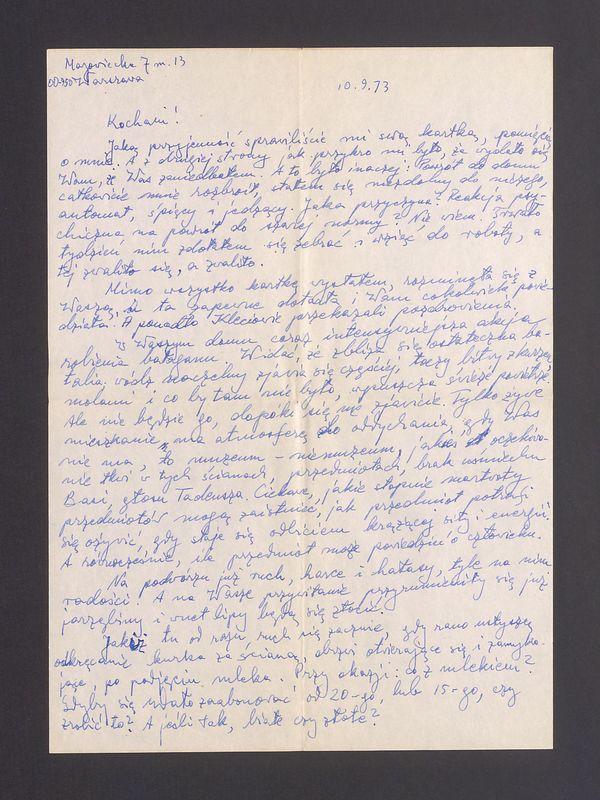 Mazowiecka 7 m. 13
00-950 Warszawa
10.9.73
Kochani!
Jaką przyjemność sprawiliście mi swą kartką, pamięcią
o mnie. A z drugiej strony jak przykro mi było, że wydało się
Wam, że Was zaniedbałem. A to było inaczej. Powrót do domu
całkowicie mnie rozbroił, stałem się niezdolny do niczego,
automat, śpiący i jedzący. Jaka przyczyna? Reakcja psy-
chiczna na powrót do szarej normy? Nie wiem. Trwało
tydzień nim zdołałem się zebrać i wziąć do roboty, a
tej zwaliło się, a zwaliło.
Mimo wszystko kartkę wysłałem, rozminęła się z
Waszą, ta zapewne dotarła i Wam cokolwiek powie-
działa. A ponadto Kleciowie przekazali pozdrowienia.
W Waszym domu coraz intensywniejsza akcja
robienia bałaganu. Widać, że zbliża się ostateczna ba-
talia. wódz naczelny zjawia się częściej, toczy bitwy z kurzem,
molami i co by tam nie było, wpuszcza świeże powietrze.
Ale nie będzie go, dopóki się nie zjawicie. Tylko żywe
mieszkanie ma atmosferę do oddychania, gdy Was
nie ma, to muzeum - niemuzeum, jakieś oczekiwa-
nie tkwi w tych ścianach, przedmiotach, brak uśmiechu
Basi głosu Tadeusza. Ciekawe, jakie stopnie martwoty
przedmiotów mogą zaistnieć, jak przedmiot potrafi
się ożywić, gdy staje się odbiciem krążącej siły i energii.
A równocześnie, ile przedmiot może powiedzieć o człowieku.
Na podwórzu już ruch, harce i hałasy, tyle na nim
radości. A na Wasze przywitanie przyrumieniły się już
jarzębiny i wnet lipy będą się złocić.
Jakiż tu od razu ruch się zacznie, gdy rano usłyszę
odkręcanie kurka za ścianą, drzwi otwierające się i zamyka-
jące, po podjęciu mleka. Przy okazji: co z mlekiem?
Gdyby się udało zaabonować od 20-go, lub 15-go, czy
zrobić to? A jeśli tak, białe czy żółte?